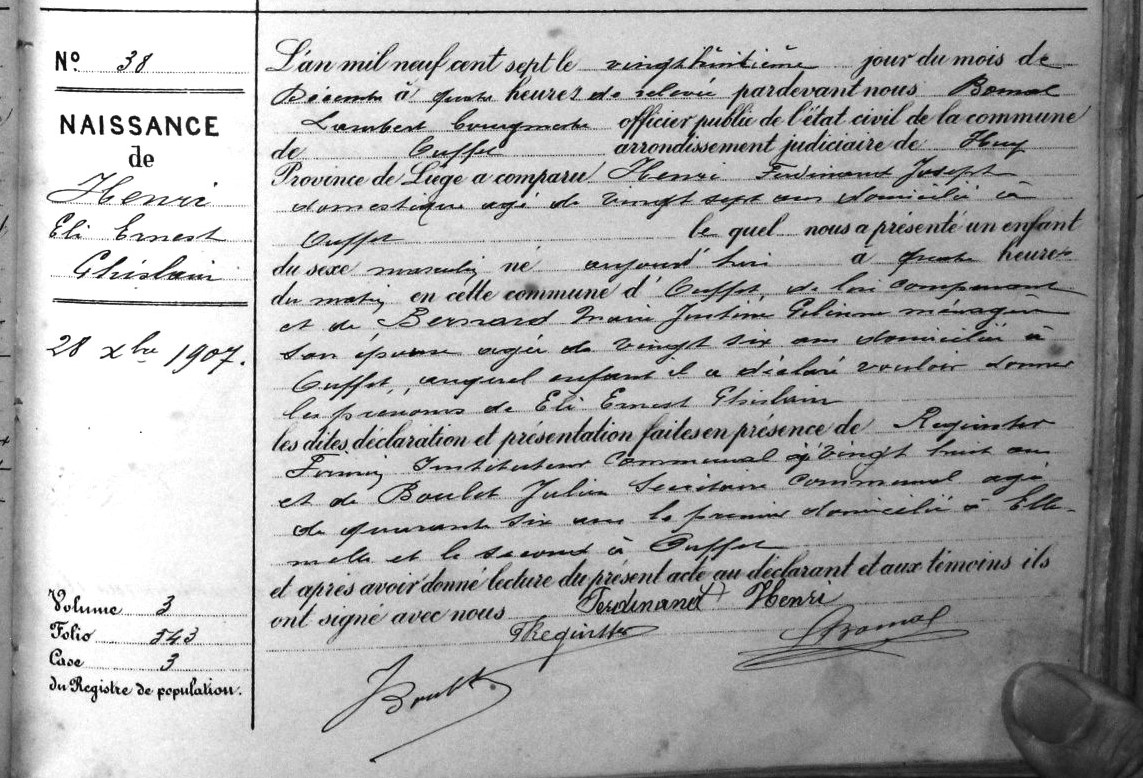 Nº 38
NAISSANCE
de
Henri
Eli Ernest
Ghislain
28 Xbre 1907.
Volume 3
Folio 543
Case 3
du Registre de population.
L'an mil neuf cent sept le vingt huitième jour du mois de
Décembre à quatre heures de relevée pardevant nous Bomal
Lambert officier public de l'état civil de la commune
de Ouffet arrondissement judiciaire de Huy
Province de Liége a comparu Henri Ferdinand Joseph
domestique agé de vingt sept ans domicilié à
Ouffet le quel nous a présenté un enfant
du sexe masculin né aujourd'hui à quatre heures
du matin en cette commune d'Ouffet, de lui comparant
et de Bernard Marie Justine ménagère
son épouse agée de vingt six ans domiciliée à
Ouffet, auquel enfant il a déclaré vouloir donner
les prénoms de Eli Ernest Ghislain
les dites déclaration et présentation faites en présence de Reginster
Firmin Instituteur communal vingt huit ans
et de Boulet Julien Secrétaire communal agé
de quarante six ans le premier domicilié à Elle-
melle et le second à Ouffet
et après avoir donné lecture du présent acte au déclarant et aux témoins ils
ont signé avec nous Ferdinand Henri
FReginster LBomal
JBoulet